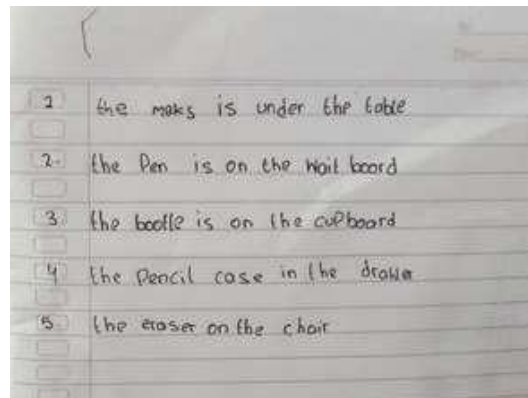 1 the maks is under the table
2. the Pen is on the wait board
3 the bootle is on the cupboard
4 the Pencil case in the drawer
5 the eraser on the chair